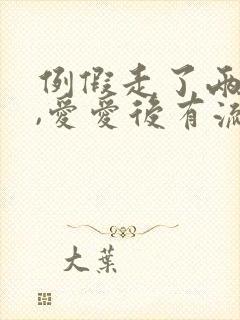 例假走了兩
,愛愛後有流
大葉